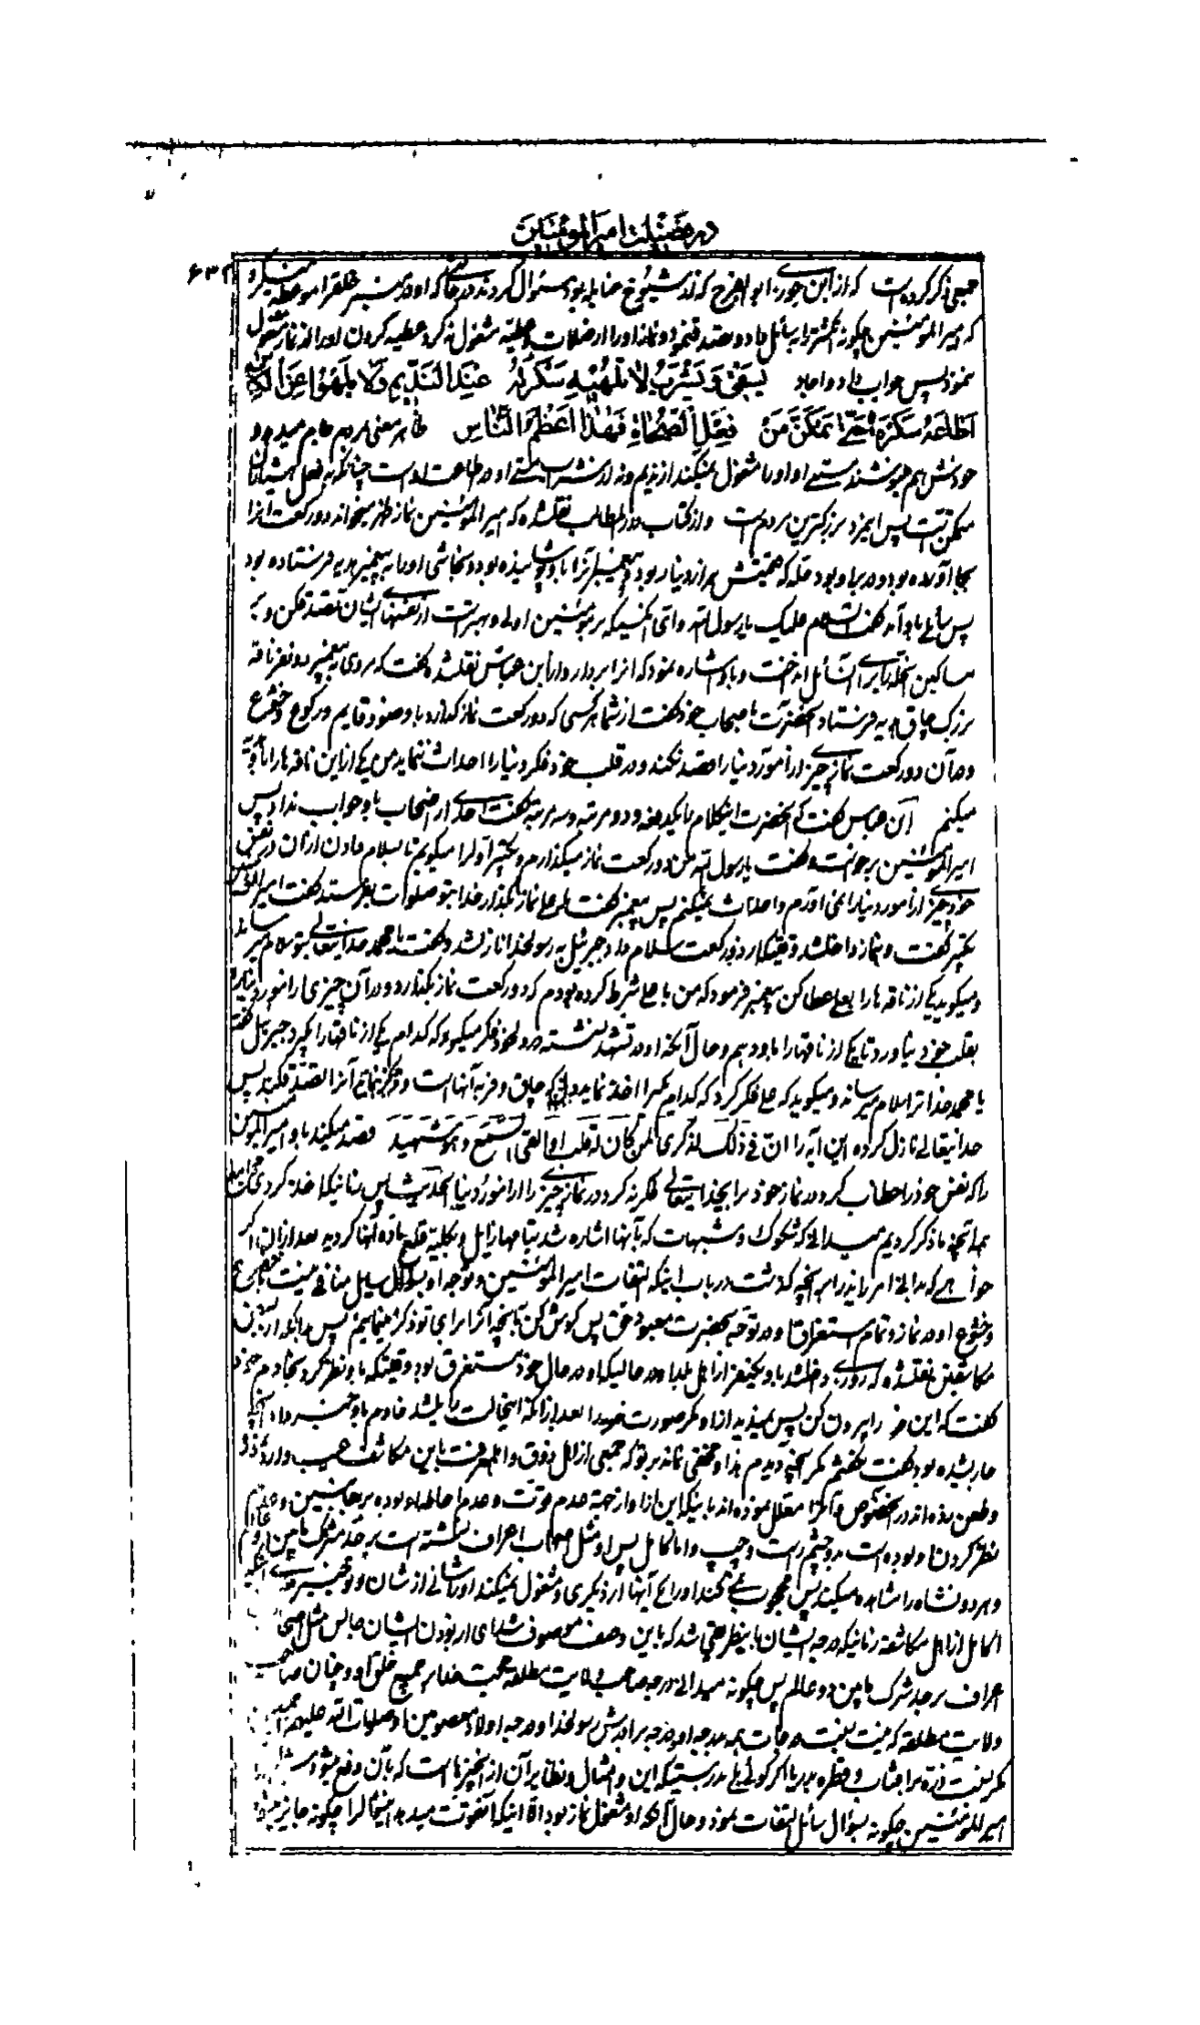 در فضیلت امیرالمؤمنین
۶۳۲
جمعی ذکر کرده است که از ابن جوزی ابو الفرج که از شیوخ حنابله بود سئوال کردند در حالی که او در منبر خلق را موعظه میکرد
که امیرالمؤمنین چگونه انگشتر را بسائل داد و تصدق نمود و نماز او را از صلات مشغول نکرد عطیه کردن او را از نماز مشغول
نمود پس جواب داد و اجاد یسقی و یشرب لا تلهیه سکرته عن الندیم و لا یلهو عن الکاس
اطاعه سکره حتی تمکن من فعل الصحاة فهذا اعظم الناس ظاهر معنی مردم جام میدهد و
خودش هم مینوشد مستی او او را مشغول نمیکند از ندیم و نه از شراب مستی او در طاعت اوست چنانکه فعل هشیاران
ممکن پس این مرد بزرگترین مردم است و از کتاب در المطالب نقلشده که امیرالمؤمنین نماز ظهر میخواند دو رکعت را
بجا آورده بود و در بر او بود حله که قیمتش هزار دینار بود پیغمبر آنرا باو پوشانیده بود و نجاشی او را به پیغمبر هدیه فرستاده بود
پس سائلی باو آمد گفت السلام علیک یا رسول الله و ای کسیکه بر مؤمنین اولی و بهتر است از نفسهای ایشان تصدق کن بر
مساکین حله را برای السائل انداخت و باو اشاره نمود که آنرا بردار و از ابن عباس نقلشده گفت که مردی به پیغمبر دو نفر ناقه
بزرگ چاق هدیه فرستاد آنحضرت باصحاب خود گفت از شما هر کسی که دو رکعت نماز گذارد با وضو و قایم و رکوع و خشوع
و در آن دو رکعت نماز چیزی از امور دنیا را قصد نکند و در قلب خود فکر دنیا را احداث ننماید من یکی از این ناقه ها را باو
میکنم ابن عباس گفت که آنحضرت اینکلام را یکدفعه و دو مرتبه و سه مرتبه گفت احدی از اصحاب باو جواب نداد پس
امیرالمؤمنین برخواست و گفت یا رسول الله من دو رکعت نماز میگذارم و تکبیر اولرا میگویم تا سلام دادن از آن در نفس
خود چیزی از امور دنیا را نمی آورم و احداث نمیکنم پس پیغمبر گفت یا علی نماز بگذار خدا بتو صلوات بفرستد گفت امیرالمؤمنین
تکبیر گفت و بنماز داخلشد وقتیکه از دو رکعت سلام داد جبرئیل به رسولخدا نازلشد و گفت یا محمد خدایتعالی بتو سلام میرساند
و میگوید یکی از ناقه ها را بعلی عطا کن پیغمبر فرمود که من با علی شرط کرده بودم که دو رکعت نماز بگذارد و در آن چیزی را از امور دنیا
بقلب خود نیاورد تا یکی از ناقها را باو دهم و حال آنکه او در تشهد نشسته در دل خود فکر میکرد که کدام یکی از ناقها را بگیرد جبرئیل گفت
یا محمد خدا ترا سلام میرساند و میگوید که علی فکر کرد که کدام یک را اخذ نماید که چاق و فربه آنهاست و آنرا تصدق کند پس
خدایتعالی نازل کرده این آیه را ان فی ذلک لذکری لمن کان له قلب او القی السمع و هو شهید قصد میکند باو امیرالمؤمنین
را که نفس خود را خطاب کرد در نماز خود مر خدایتعالی فکر نکرد در نماز چیزی را از امور دنیا الحدیث پس
بدانچه ما ذکر کردیم میدانی که شکوک و شبهات که بآنها اشاره شد بتمامها زایل و بکلیه قلع ماده آنها گردید بعد از آن اگر
خواهی که بدانی امر را بدان آنچه گذشت در باب اینکه التفات امیرالمؤمنین و توجه او بسؤال سائل منافی نیست بخضوع
و خشوع او در نماز و تمام استغراق او در توجه بحضرت معبود حق پس گوش کن بآنچه آنرا برای تو ذکر مینمایم پس بدانکه از بعضی
مکاشفین نقلشده که روزی داخلشد باو یکنفر از اهل بلد او در حالیکه او در حال خود مستغرق بود وقتیکه باو نظر کرد بخادم خود
گفت که این خر را بیرون کن پس ندید از او مگر صورت خر را بعد از آنکه اینحالت زایلشد خادم باو خبر داد آنچه
جاریشده بود گفت نگفتم مگر آنچه دیدم و مخفی نماند بر تو که جمعی از اهل ذوق و اهل معرفت باین مکاشف عیب وارد
و طعن زده اند در آنخصوص و آنرا معلل نموده اند باینکه این از او از جهة عدم قوت و عدم احاطه او بوده بر جانبین و عدم
نظر کردن او بوده است بدو چشم راست و چپ و اما کامل پس او مثل اصحاب اعراف نشسته است بر حد مشترک مابین دو عالم
و هر دو نشاه را مشاهده میکند پس محجوب نمی کند او را یکی آنها از دیگری و مشغول نمیکند او را شانی از شان
الکامل از اهل مکاشفه زمانیکه درجه ایشان باینطریقی شد که باین وصف موصوف شدهای از بودن ایشان جالس مثل اصحاب
اعراف بر حد مشترک مابین دو عالم پس چگونه میدانی درجه صاحب ولایت مطلقه حجت خدا بر جمیع خلق او و چنان صاحب
ولایت مطلقه که نیست نسبت درجات همه بدرجه او و درجه برادرش رسولخدا و درجه اولاد معصومین او صلوات الله علیهم
مگر نسبت ذره بر آفتاب و قطره بدریا اگر گوئی بلی بدرستیکه این و امثال و نظایر آن از آنچیزهاست که بآن رفع میشود
امیرالمؤمنین چگونه بسؤال سائل التفات نمود و حال آنکه او مشغول نماز بود اما اینکه آنقوت میدهد اینحال را چگونه جایز